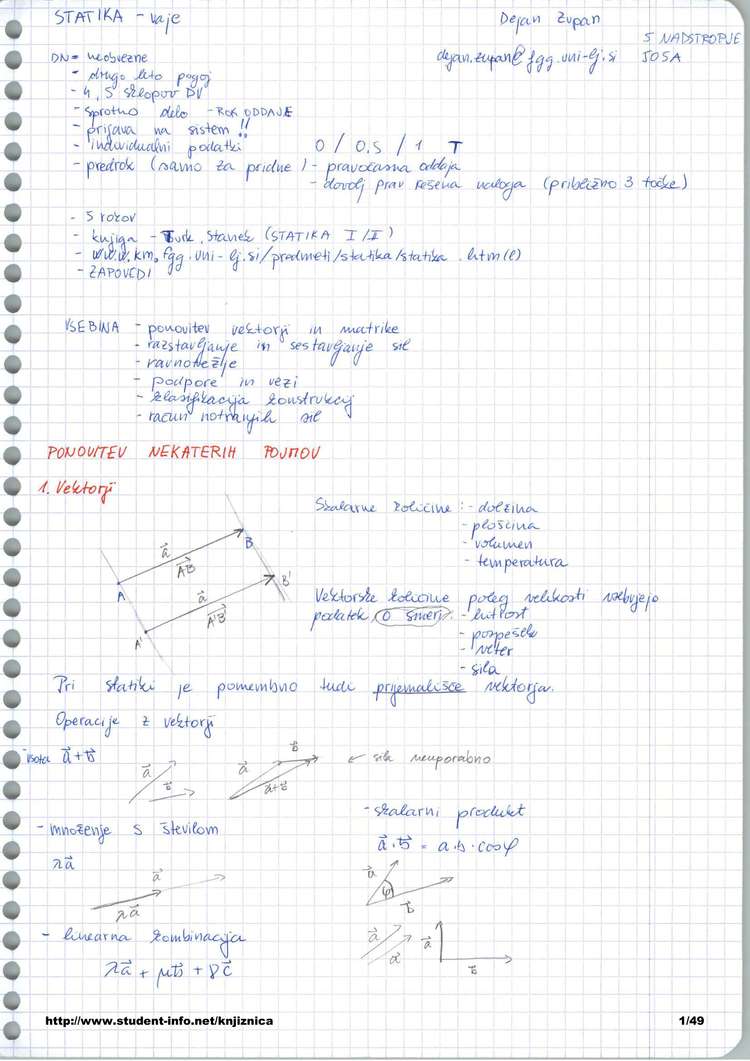 STATIKA - vaje
Dejan Zupan
5 NADSTROPJE
dejan.zupan@fgg.uni-lj.si J05A
DN = neobvezne
- drugo leto pogoj
- 4, 5 sklopov DN
- sprotno delo - ROK ODDAJE
- prijava na sistem !!
- individualni podatki 0 / 0.5 / 1 T
- predrok (samo za pridne) - pravočasna oddaja
- dovolj prav rešena naloga (približno 3 točke)
- 5 rokov
- knjiga - Turk, Stanek (STATIKA I/II)
- www.km.fgg.uni-lj.si/predmeti/statika/statika.htm(l)
- ZAPOVEDI
VSEBINA - ponovitev vektorji in matrike
- razstavljanje in sestavljanje sil
- ravnotežje
- podpore in vezi
- klasifikacija konstrukcij
- račun notranjih sil
PONOVITEV NEKATERIH POJMOV
1. Vektorji
Skalarne količine : - dolžina
- ploščina
- volumen
- temperatura
a⃗
AB⃗
A
B
a⃗
A'B'⃗
A'
B'
Vektorske količine poleg velikosti vsebujejo
podatek o smeri. - hitrost
- pospešek
- veter
- sila
Pri statiki je pomembno tudi prijemališče vektorja.
Operacije z vektorji
vsota a⃗ + b⃗
a⃗
b⃗
a⃗
b⃗
a⃗+b⃗
← sila neuporabno
- množenje s številom
λa⃗
a⃗
λa⃗
- skalarni produkt
a⃗ . b⃗ = a.b.cosφ
a⃗
φ
b⃗
- linearna kombinacija
λa⃗ + μb⃗ + γc⃗
a⃗
a⃗
a⃗
b⃗
http://www.student-info.net/knjiznica
1/49